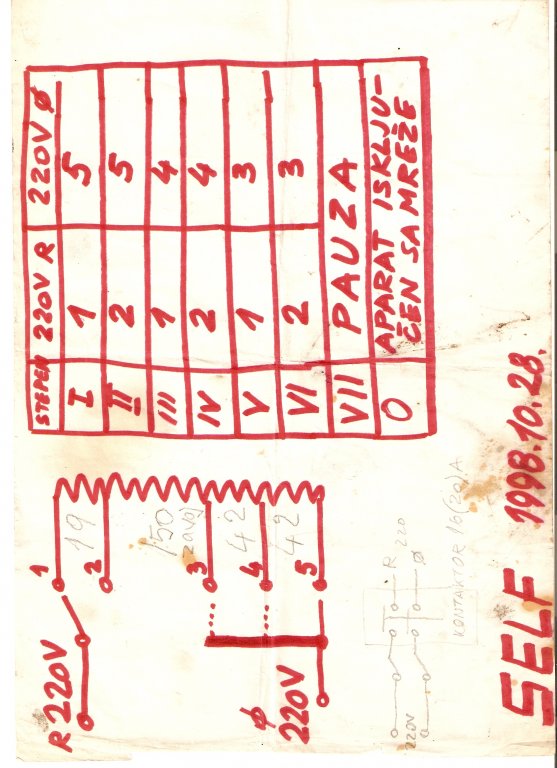 R 220V
1
19
2
150
zavoj
3
42
4
42
5
Ø
220V
STEPEN 220V R 220V Ø
I 1 5
II 2 5
III 1 4
IV 2 4
V 1 3
VI 2 3
VII PAUZA
O APARAT ISKLJU-
ČEN SA MREŽE
R 220
220V
Ø
KONTAKTOR 16(20)A
SELF 1998.10.28.